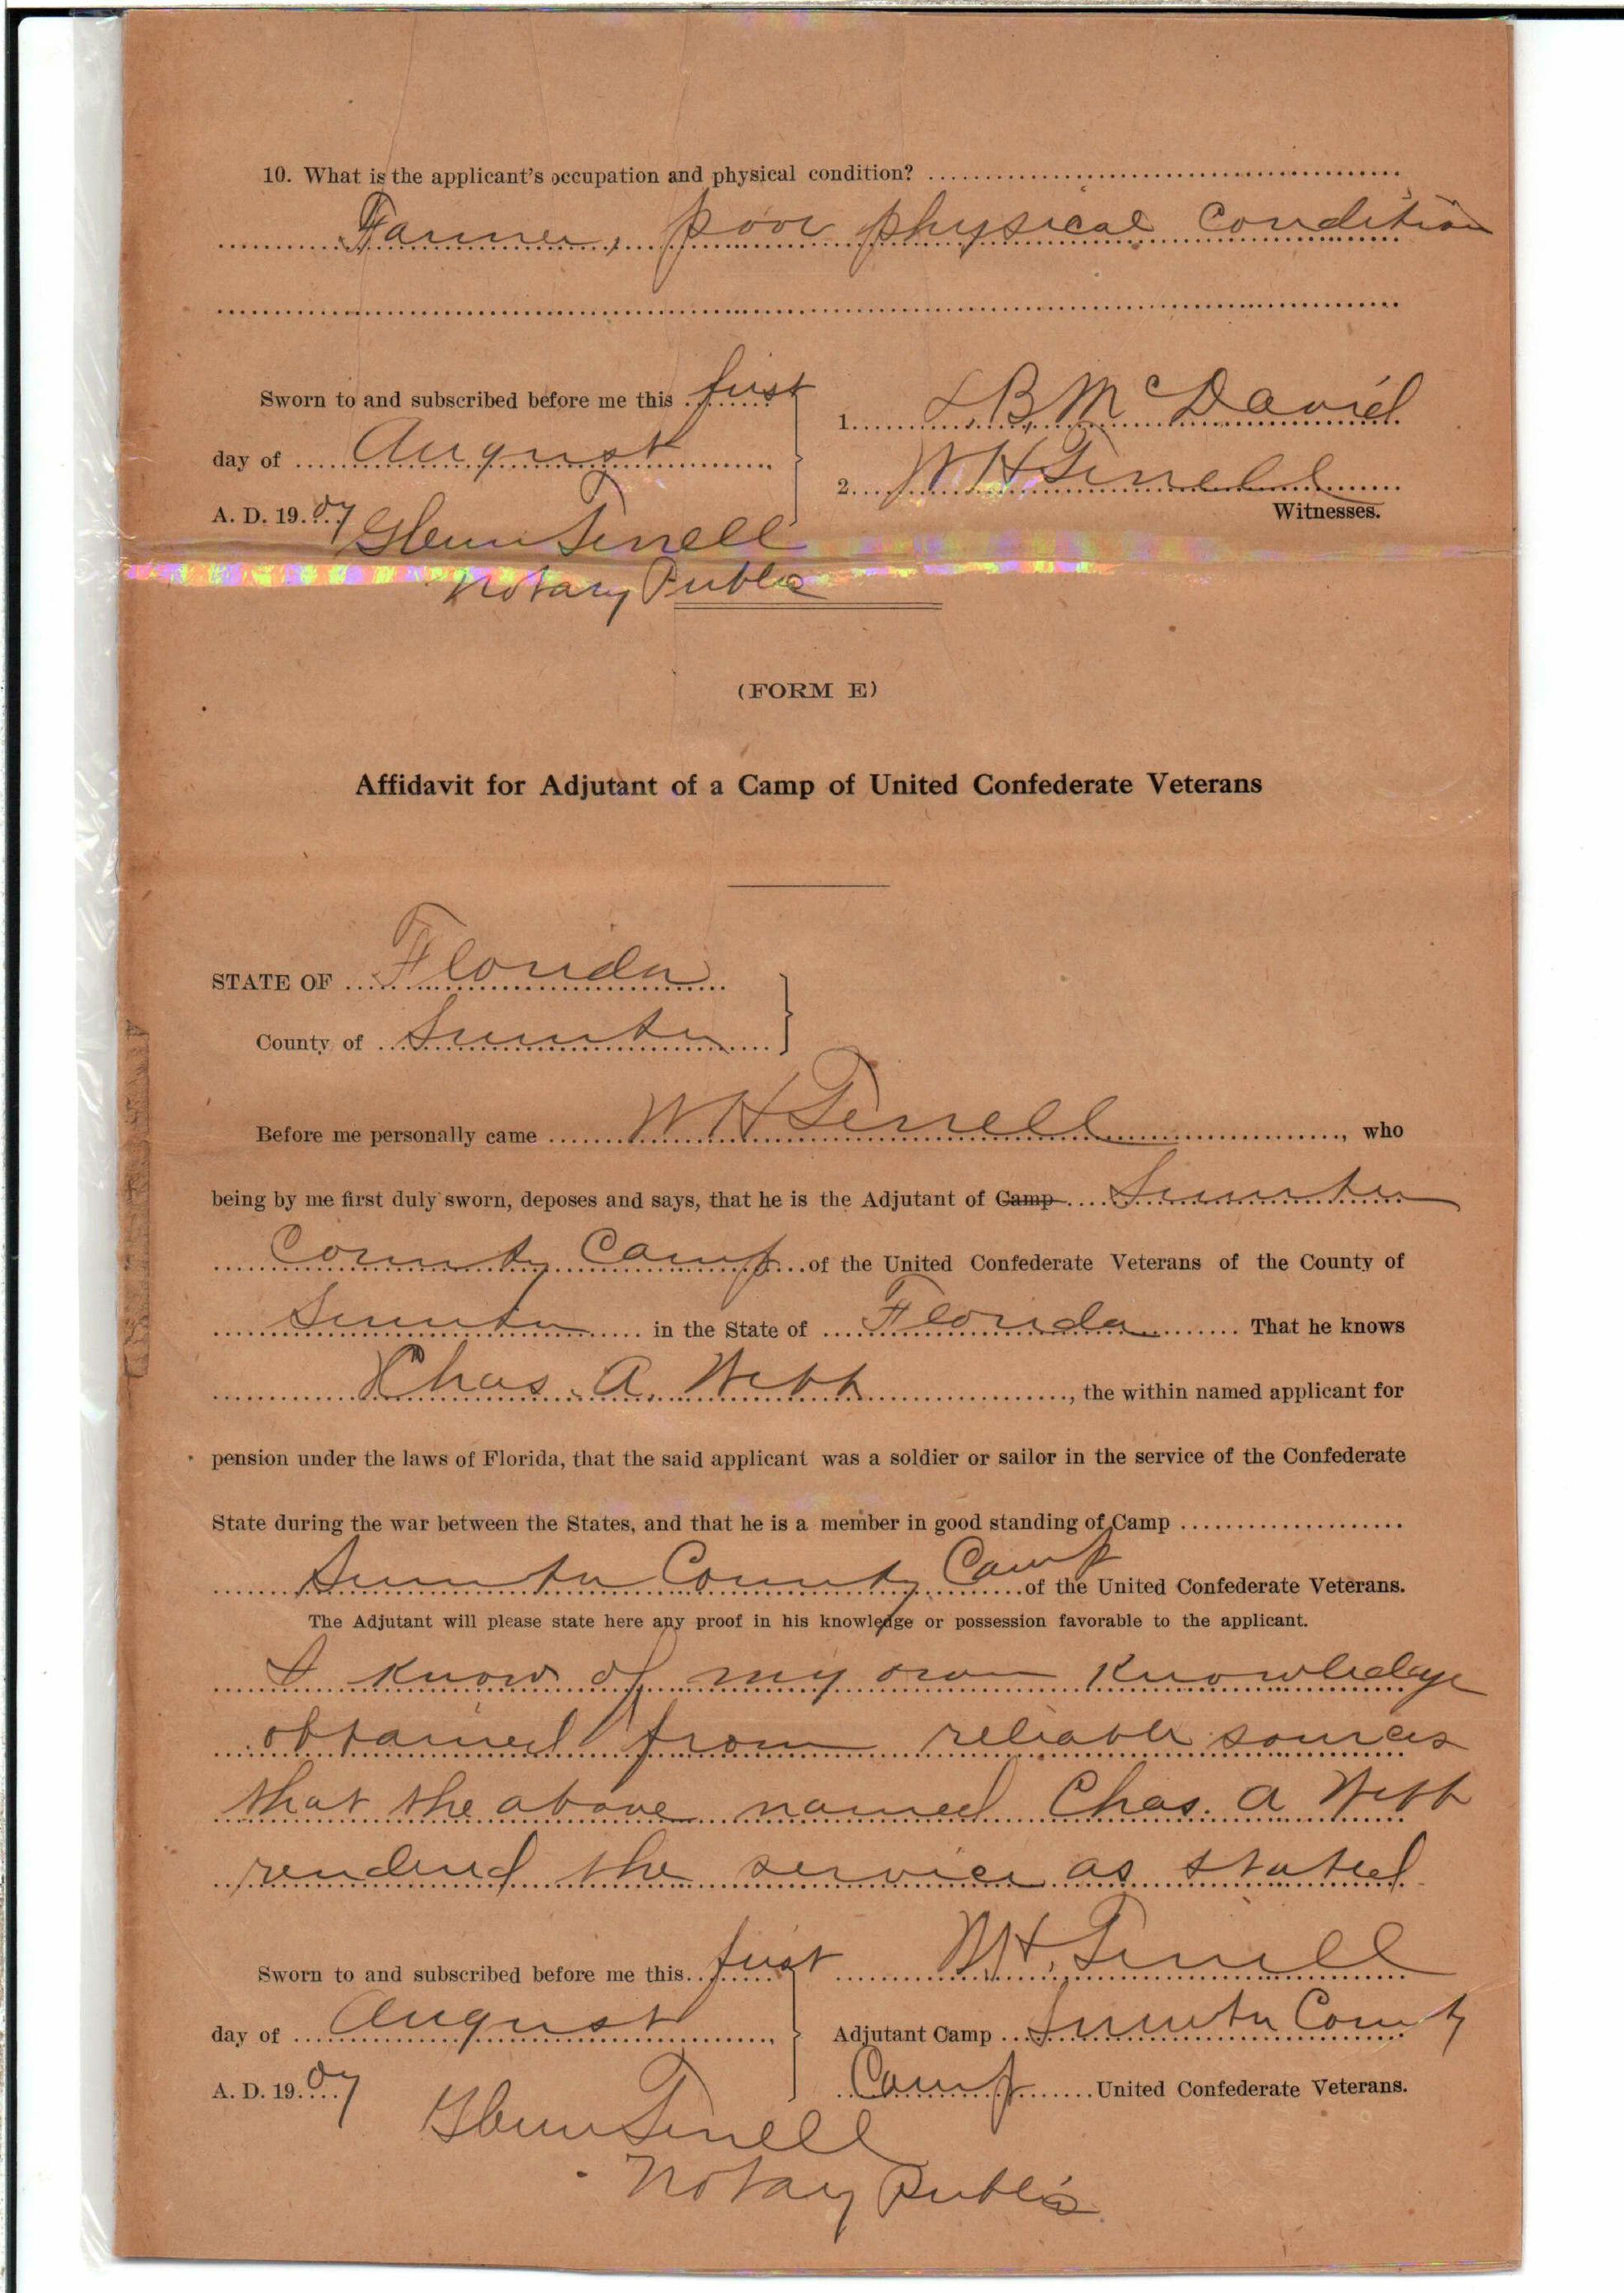 10. What is the applicant's occupation and physical condition?
Farmer, poor physical condition
Sworn to and subscribed before me this first
day of August
A. D. 1907
Glenn Terrell
Notary Public
1. L.B. McDavid
2. W H Terrell
Witnesses.
(FORM E)
Affidavit for Adjutant of a Camp of United Confederate Veterans
STATE OF Florida
County of Sumter
Before me personally came W H Terrell, who
being by me first duly sworn, deposes and says, that he is the Adjutant of Camp Sumter
County Camp of the United Confederate Veterans of the County of
Sumter in the State of Florida That he knows
Chas. A. Webb, the within named applicant for
pension under the laws of Florida, that the said applicant was a soldier or sailor in the service of the Confederate
State during the war between the States, and that he is a member in good standing of Camp
Sumter County Camp of the United Confederate Veterans.
The Adjutant will please state here any proof in his knowledge or possession favorable to the applicant.
I know of my own knowledge
obtained from reliable sources
that the above named Chas. A Webb
rendered the service as stated
Sworn to and subscribed before me this first
day of August
A. D. 1907
W.H. Terrell
Adjutant Camp Sumter County
Camp United Confederate Veterans.
Glenn Terrell
Notary Public